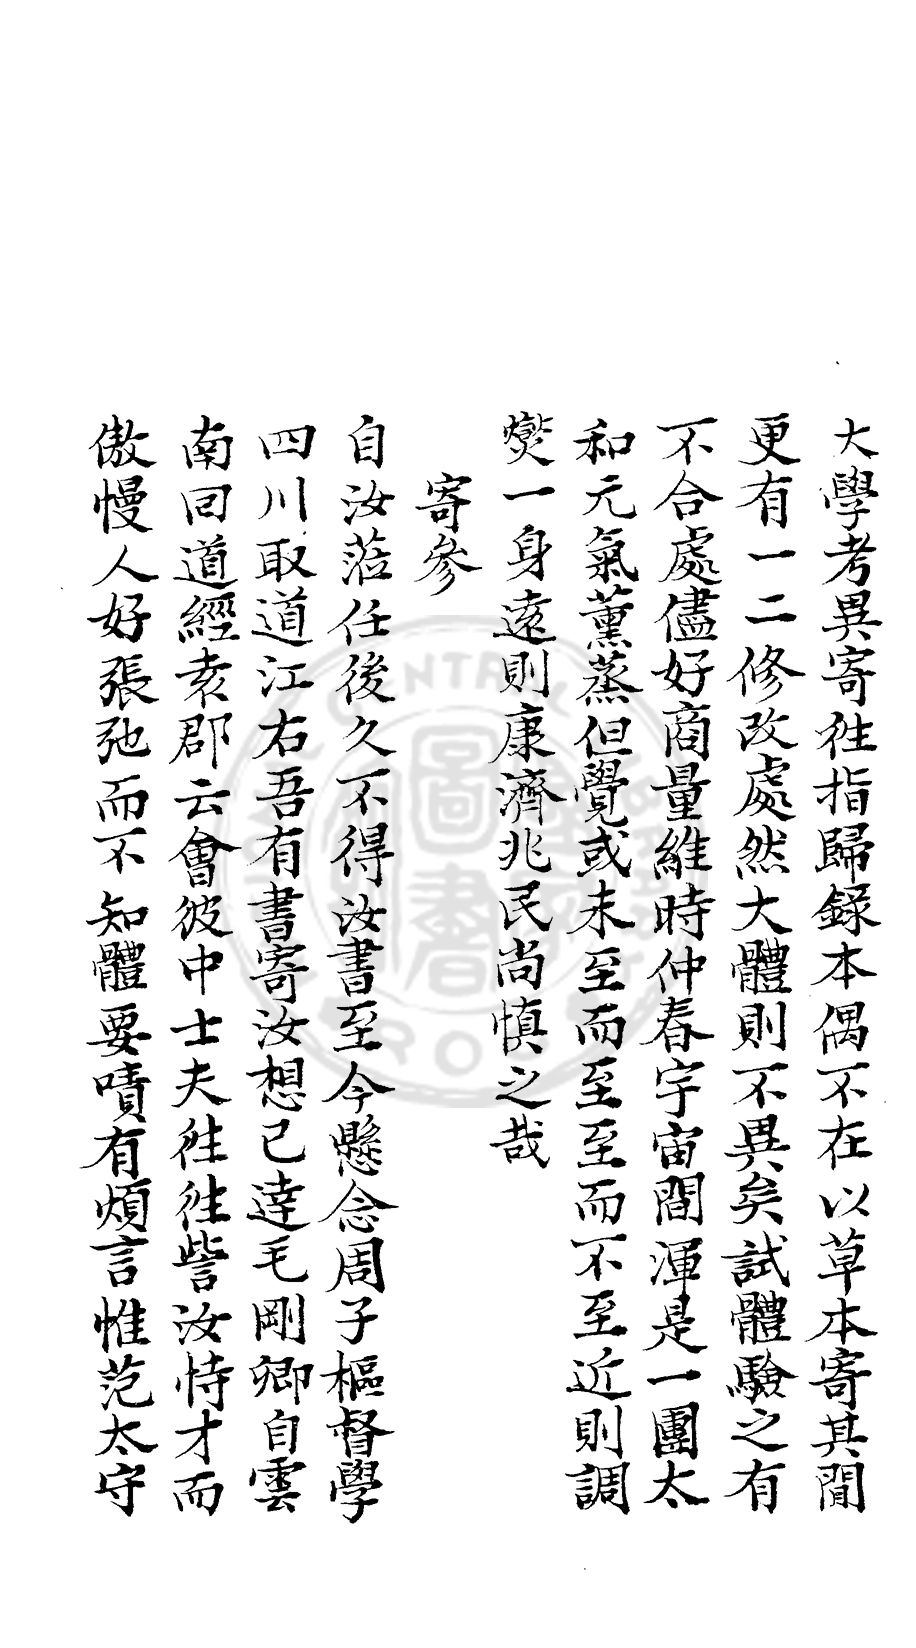 大學考異寄徃指歸錄本偶不在以草本寄其間
更有一二修改處然大體則不異矣試體驗之有
不合處儘好商量維時仲春宇宙間渾是一團太
和元氣薰蒸但覺或未至而至至而不至近則調
爕一身遠則康濟兆民尚慎之哉
寄參
自汝蒞任後久不得汝書至今懸念周子樞督學
四川取道江右吾有書寄汝想已達毛剛卿自雲
南回道經袁郡云會彼中士夫徃徃訾汝恃才而
傲慢人好張弛而不知體要嘖有煩言惟范太守
CENTRAL
圖書